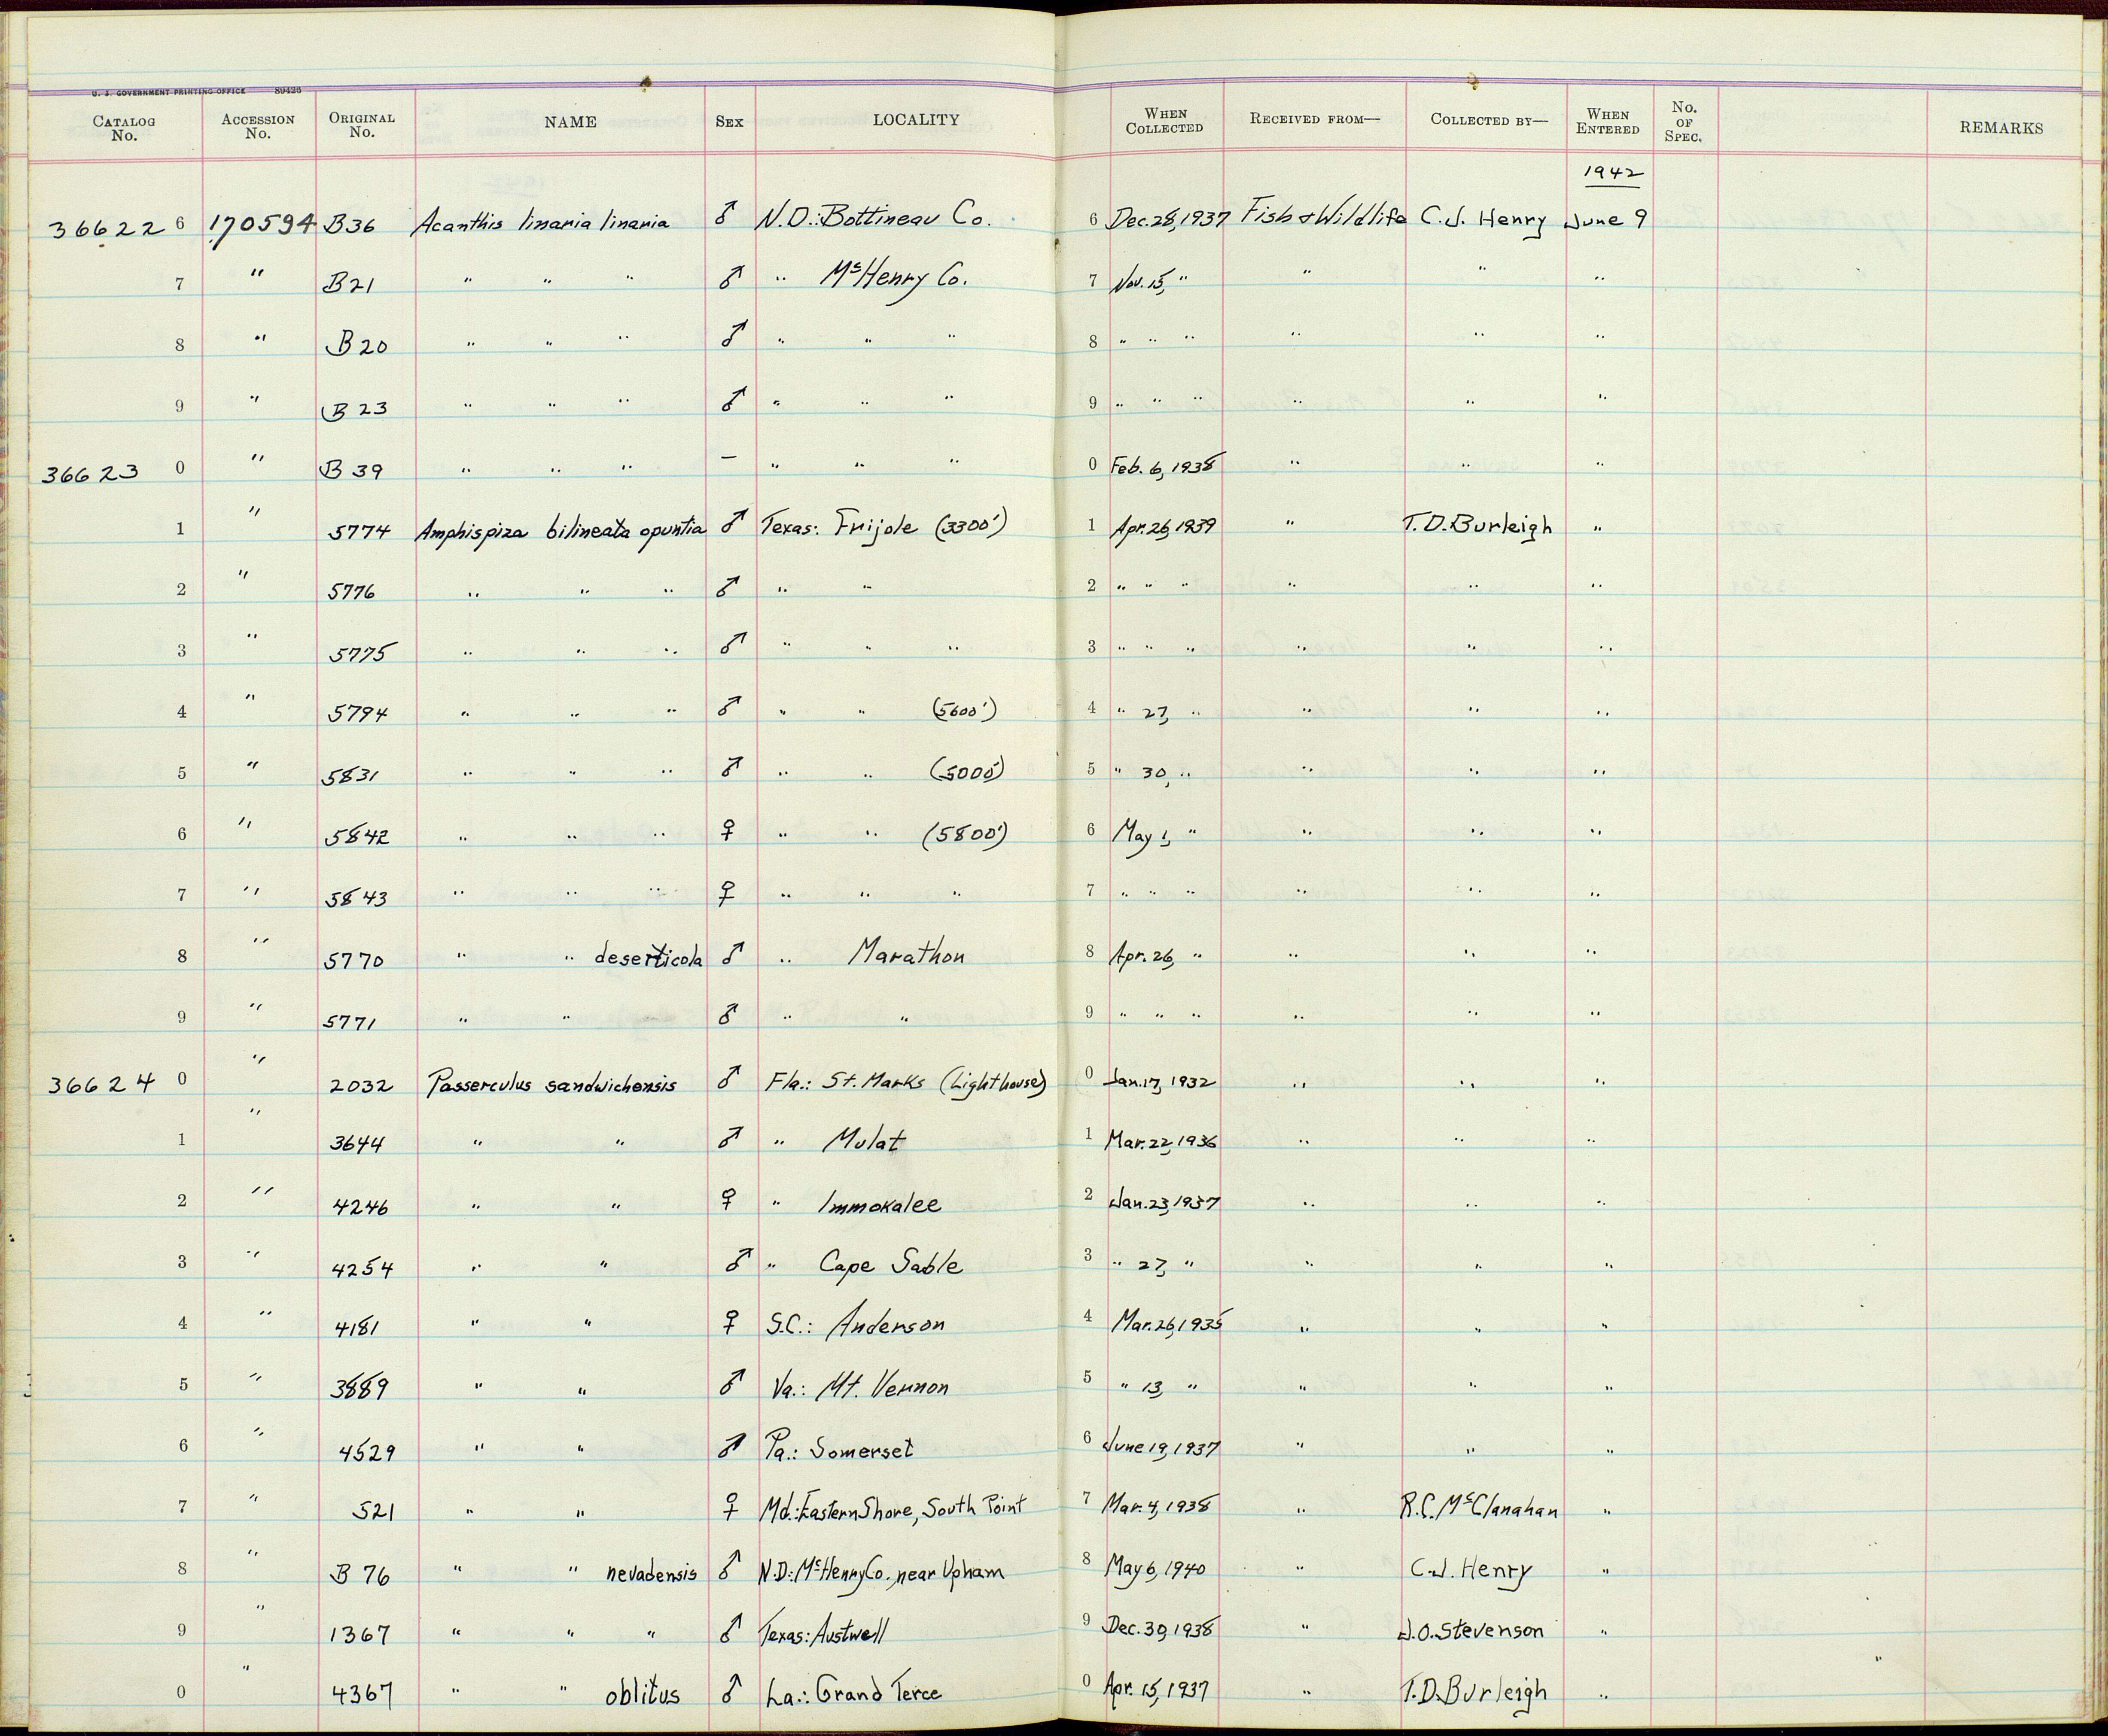 U. S. GOVERNMENT PRINTING OFFICE 89426
CATALOG No. ACCESSION No. ORIGINAL No. NAME SEX LOCALITY WHEN COLLECTED RECEIVED FROM— COLLECTED BY— WHEN ENTERED No. OF SPEC. REMARKS
1942
36622 6 170594 B36 Acanthis linaria linaria ♂ N.D.: Bottineau Co. 6 Dec. 28, 1937 Fish & Wildlife C.J. Henry June 9
7 " B21 " " " ♂ " McHenry Co. 7 Nov. 15, " " " "
8 " B20 " " " ♂ " " " 8 " " " " " "
9 " B23 " " " ♂ " " " 9 " " " " " "
36623 0 " B39 " " " — " " " 0 Feb. 6, 1938 " " "
1 " 5774 Amphispiza bilineata opuntia ♂ Texas: Frijole (3300') 1 Apr. 26, 1939 " T.D. Burleigh "
2 " 5776 " " " ♂ " " 2 " " " " " "
3 " 5775 " " " ♂ " " " 3 " " " " " "
4 " 5794 " " " ♂ " " (5600') 4 " 27, " " " "
5 " 5831 " " " ♂ " " (5000') 5 " 30, " " " "
6 " 5842 " " " ♀ " " (5800') 6 May 1, " " " "
7 " 5843 " " " ♀ " " " 7 " " " " " "
8 " 5770 " " deserticola ♂ " Marathon 8 Apr. 26, " " " "
9 " 5771 " " " ♂ " " 9 " " " " " "
36624 0 " 2032 Passerculus sandwichensis ♂ Fla.: St. Marks (Lighthouse) 0 Jan. 17, 1932 " " "
1 " 3644 " " ♂ " Mulat 1 Mar. 22, 1936 " " "
2 " 4246 " " ♀ " Immokalee 2 Jan. 23, 1937 " " "
3 " 4254 " " ♂ " Cape Sable 3 " 27, " " " "
4 " 4181 " " ♀ S.C.: Anderson 4 Mar. 26, 1935 " " "
5 " 3889 " " ♂ Va.: Mt. Vernon 5 " 13, " " " "
6 " 4529 " " ♂ Pa.: Somerset 6 June 19, 1937 " " "
7 " 521 " " ♀ Md.: Eastern Shore, South Point 7 Mar. 4, 1938 " R.C. McClanahan "
8 " B 76 " " nevadensis ♂ N.D.: McHenry Co., near Upham 8 May 6, 1940 " C.J. Henry "
9 " 1367 " " " ♂ Texas: Austwell 9 Dec. 30, 1938 " J.O. Stevenson "
0 " 4367 " " oblitus ♂ La.: Grand Terce 0 Apr. 15, 1937 " T.D. Burleigh "